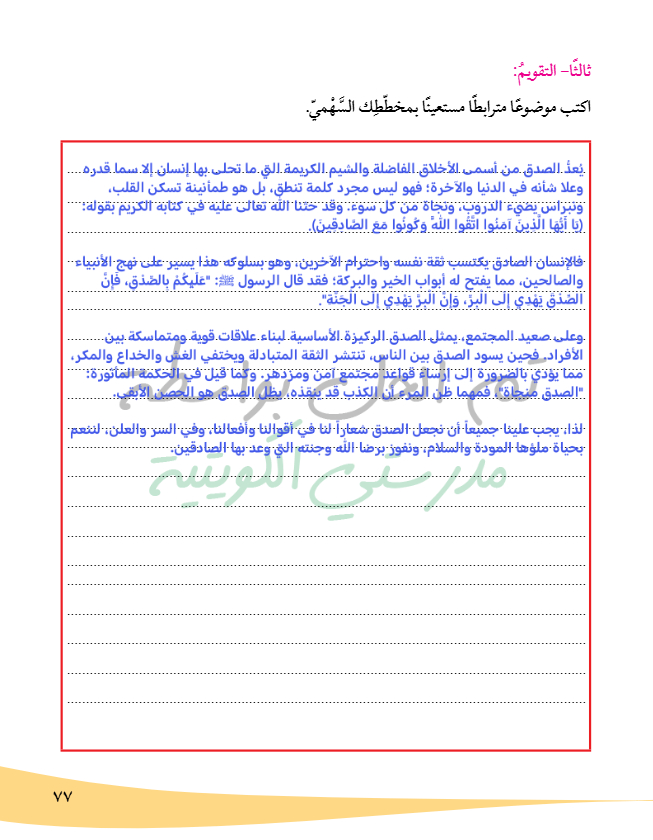 ثالثًا- التقويمُ:
اكتب موضوعًا مترابطًا مستعينًا بمخطّطِك السَّهْميّ.
يُعدُّ الصدق من أسمى الأخلاق الفاضلة والشيم الكريمة التي ما تحلى بها إنسان إلا سما قدره
وعلا شأنه في الدنيا والآخرة؛ فهو ليس مجرد كلمة تنطق، بل هو طمأنينة تسكن القلب،
ونبراس يضيء الدروب، ونجاة من كل سوء. وقد حثنا الله تعالى عليه في كتابه الكريم بقوله:
(يَا أَيُّهَا الَّذِينَ آمَنُوا اتَّقُوا اللَّهَ وَكُونُوا مَعَ الصَّادِقِينَ).
فالإنسان الصادق يكتسب ثقة نفسه واحترام الآخرين، وهو بسلوكه هذا يسير على نهج الأنبياء
والصالحين، مما يفتح له أبواب الخير والبركة؛ فقد قال الرسول ﷺ: "عَلَيكُمْ بِالصِّدْقِ، فَإِنَّ
الصِّدْقَ يَهْدِي إِلَى الْبِرِّ، وَإِنَّ الْبِرَّ يَهْدِي إِلَى الْجَنَّةِ".
وعلى صعيد المجتمع، يمثل الصدق الركيزة الأساسية لبناء علاقات قوية ومتماسكة بين
الأفراد، فحين يسود الصدق بين الناس، تنتشر الثقة المتبادلة ويختفي الغش والخداع والمكر،
مما يؤدي بالضرورة إلى إرساء قواعد مجتمع آمن ومزدهر. وكما قيل في الحكمة المأثورة:
"الصدق منجاة"، فمهما ظن المرء أن الكذب قد ينقذه، يظل الصدق هو الحصن الأبقى.
لذا، يجب علينا جميعاً أن نجعل الصدق شعاراً لنا في أقوالنا وأفعالنا، وفي السر والعلن، لننعم
بحياة ملؤها المودة والسلام، ونفوز برضا الله وجنته التي وعد بها الصادقين.
تم الحل بواسطة
مدرستي الكويتية
٧٧